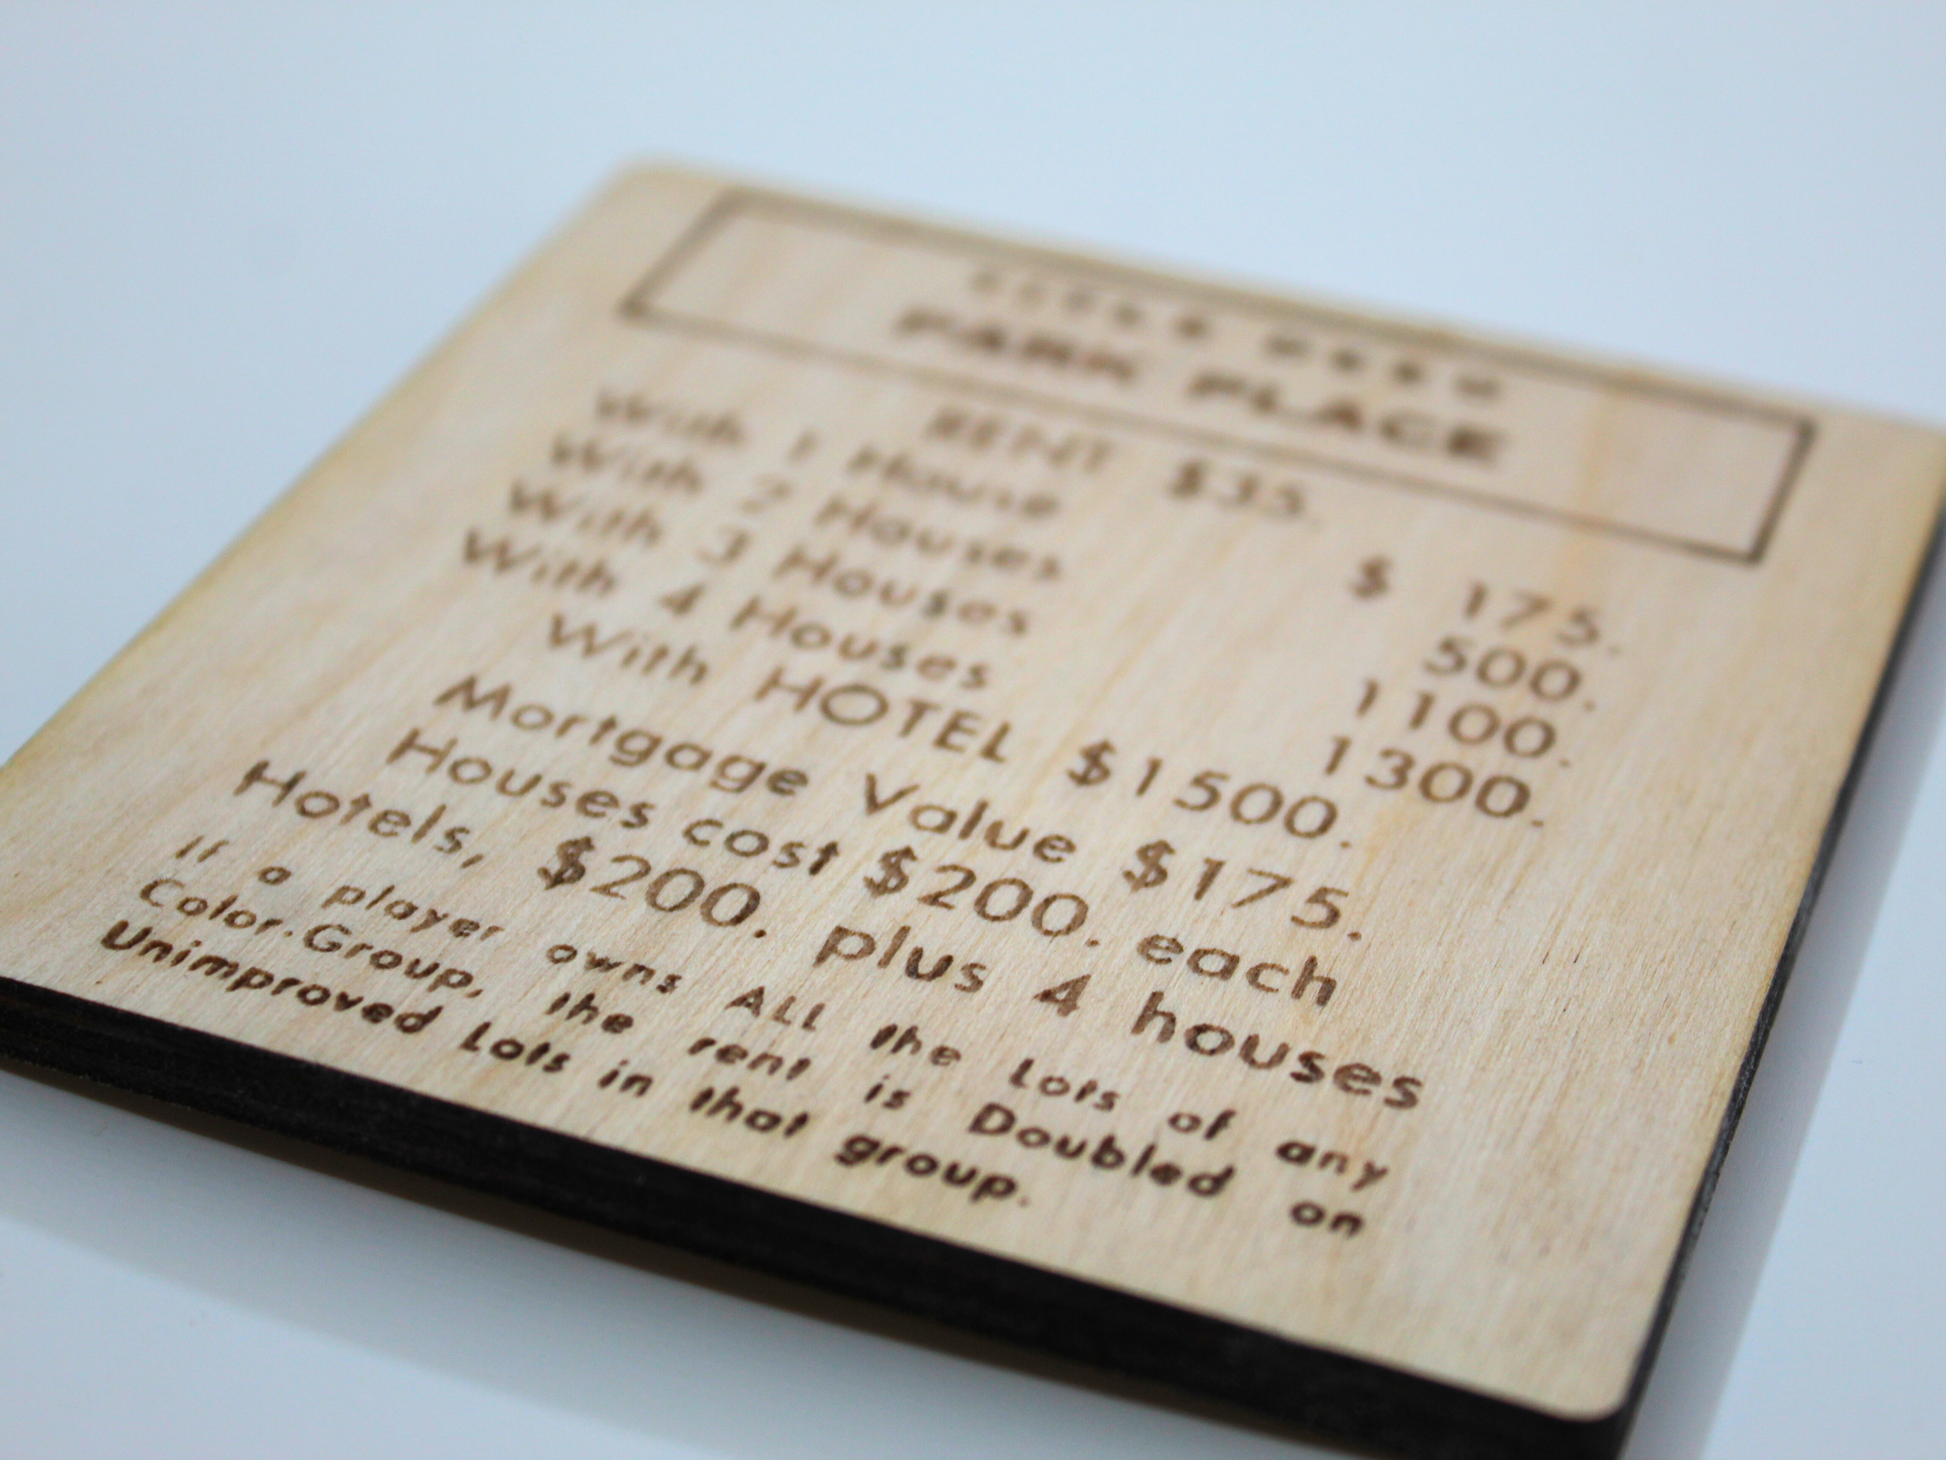 TITLE DEED
PARK PLACE
RENT $35.
With 1 House $ 175.
With 2 Houses 500.
With 3 Houses 1100.
With 4 Houses 1300.
With HOTEL $1500.
Mortgage Value $175.
Houses cost $200. each
Hotels, $200. plus 4 houses
If a player owns ALL the Lots of any
Color-Group, the rent is Doubled on
Unimproved Lots in that group.